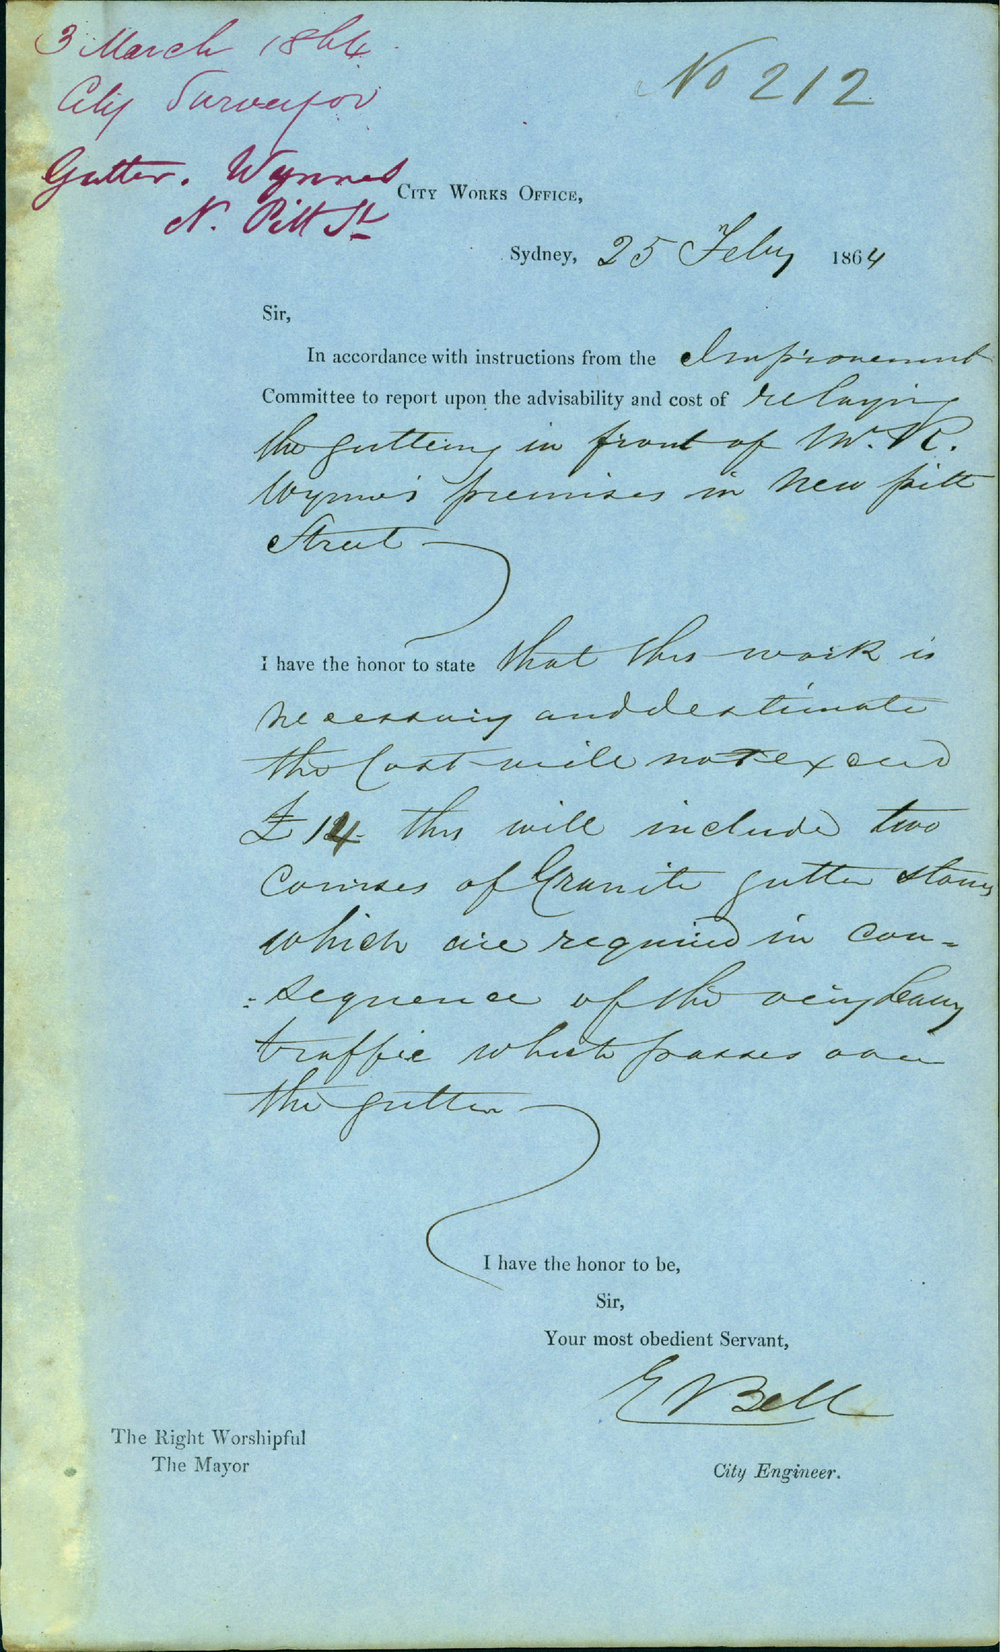 3 March 1864
City Surveyor
Gutter. Wynnes
N. Pitt St
No 212
City Works Office,
Sydney, 25 Feby 1864
Sir,
In accordance with instructions from the Improvement
Committee to report upon the advisability and cost of relaying
the guttering in front of Mr. R.
Wynne's premises in New pitt
Street
I have the honor to state that this work is
necessary and I estimate
the Cost will not exceed
£14 this will include two
Courses of Granite gutter stones
which are required in con-
sequence of the very heavy
traffic which passes over
the gutter
I have the honor to be,
Sir,
Your most obedient Servant,
E Bell
The Right Worshipful
The Mayor
City Engineer.